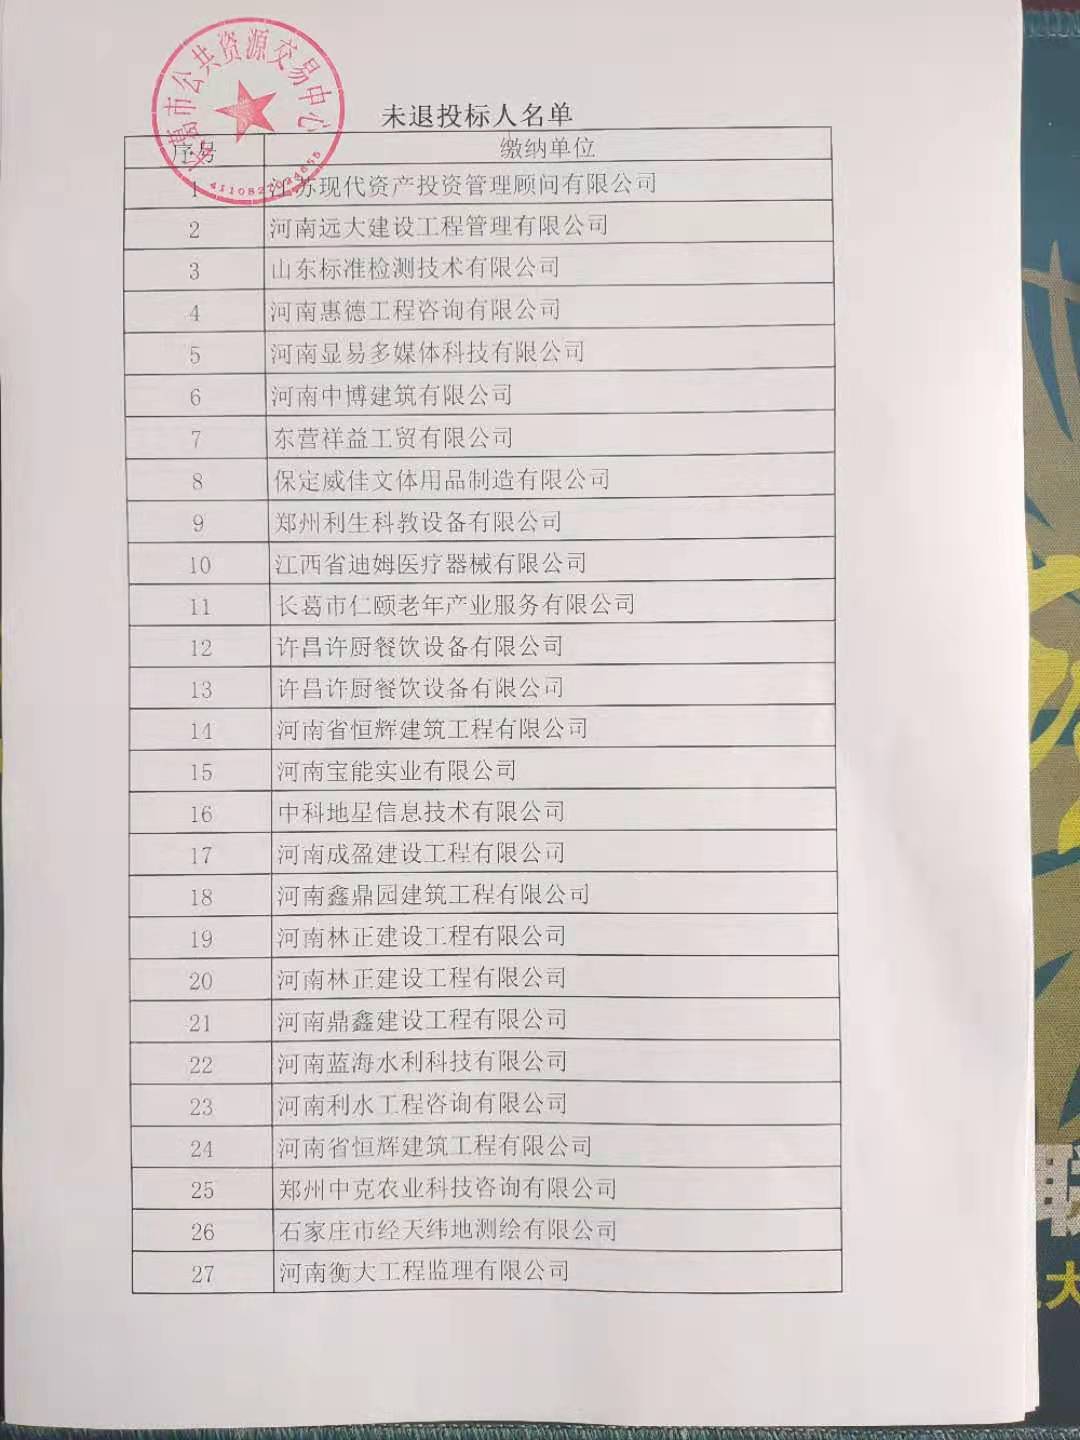 葛市公共资源交易中心
未退投标人名单
序号 缴纳单位
1 江苏现代资产投资管理顾问有限公司
2 河南远大建设工程管理有限公司
3 山东标准检测技术有限公司
4 河南惠德工程咨询有限公司
5 河南显易多媒体科技有限公司
6 河南中博建筑有限公司
7 东营祥益工贸有限公司
8 保定威佳文体用品制造有限公司
9 郑州利生科教设备有限公司
10 江西省迪姆医疗器械有限公司
11 长葛市仁颐老年产业服务有限公司
12 许昌许厨餐饮设备有限公司
13 许昌许厨餐饮设备有限公司
14 河南省恒辉建筑工程有限公司
15 河南宝能实业有限公司
16 中科地星信息技术有限公司
17 河南成盈建设工程有限公司
18 河南鑫鼎园建筑工程有限公司
19 河南林正建设工程有限公司
20 河南林正建设工程有限公司
21 河南鼎鑫建设工程有限公司
22 河南蓝海水利科技有限公司
23 河南利水工程咨询有限公司
24 河南省恒辉建筑工程有限公司
25 郑州中克农业科技咨询有限公司
26 石家庄市经天纬地测绘有限公司
27 河南衡大工程监理有限公司